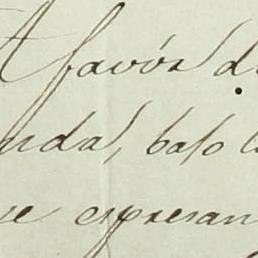 A favór d
nda, bajo l
se espresan